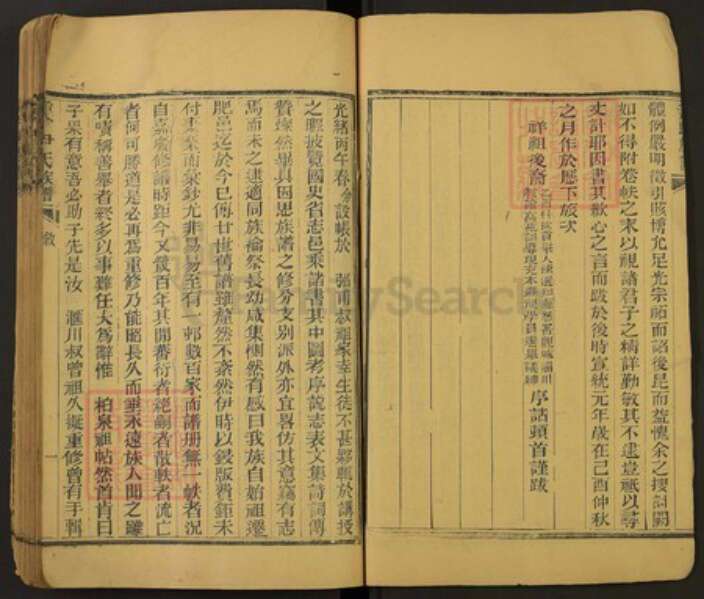 體例嚴明徵引賅博允足光宗顯而詒後昆而益愧余之搜討闕
如不得附卷帙之末以視諸君子之精詳勤敏其不逮豈祗以尋
丈計耶因書其歉心之言而跋於後時宣統元年歲在己酉仲秋
之月作於歷下旅次
祥祖後裔
序詁頓首謹跋
光緒丙午春余設帳於 弼甫叔祖家幸生徒不甚夥甄於講授
之暇披覽國史省志邑乘諸書其中圖考序說志表文集詩詞傳
贊燦然畢具因思族譜之修分支別派外亦宜畧仿其意竊有志
焉而未之逮適同族禴祭長幼咸集惻然有感曰我族自始祖遷
肥邑迄於今已傳廿世舊譜雖釐然不紊然伊時以鋟版費鉅未
付棗梨而彙鈔尤非易易至有一邨數百家而譜册無一帙者況
自嘉慶修譜時距今又幾百年其間蕃衍者絕嗣者散軼者流亡
者何可勝道是必再為重修乃能昭長久而垂永遠族人聞之雖
有嘖稱善舉者終多以事難任大為辭惟 柏泉祖帖然首肯曰
子果有意吾必助子先是汝 滙川叔曾祖久擬重修曾有手輯
尹氏族譜 敘 一
FamilySearch